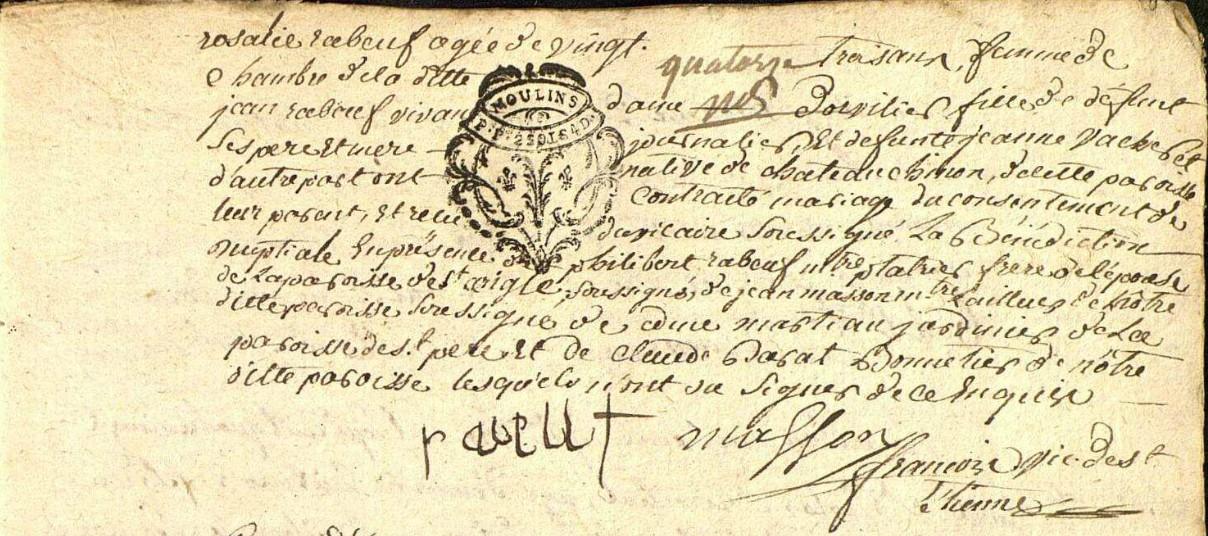 rosalie rabeuf agée de vingt trois ans, femme de
quatorze
chambre de la ditte dame Dorvilier fille de défunt
jean rabeuf vivan journalier, Et defunte jeanne vacher
ses pere Et mere native de chateauchinon, de cette paroisse
d'autre part ont contracté mariage du consentement de
leur parent, Et recu du vicaire soussigné La Bénédiction
nuptiale En présence de philibert rabeuf mtre platrier frere de l'épouse
de La paroisse de st aigle soussigné, de jean masson mtre tailleur de notre
ditte paroisse soussigné de come martiau jardinier de La
paroisse de st pere Et de claude Barat Bonnetier de notre
ditte paroisse lesquels n'ont su signer de ce Enquis
MOULINS
masson
françois vic. de st
Etienne